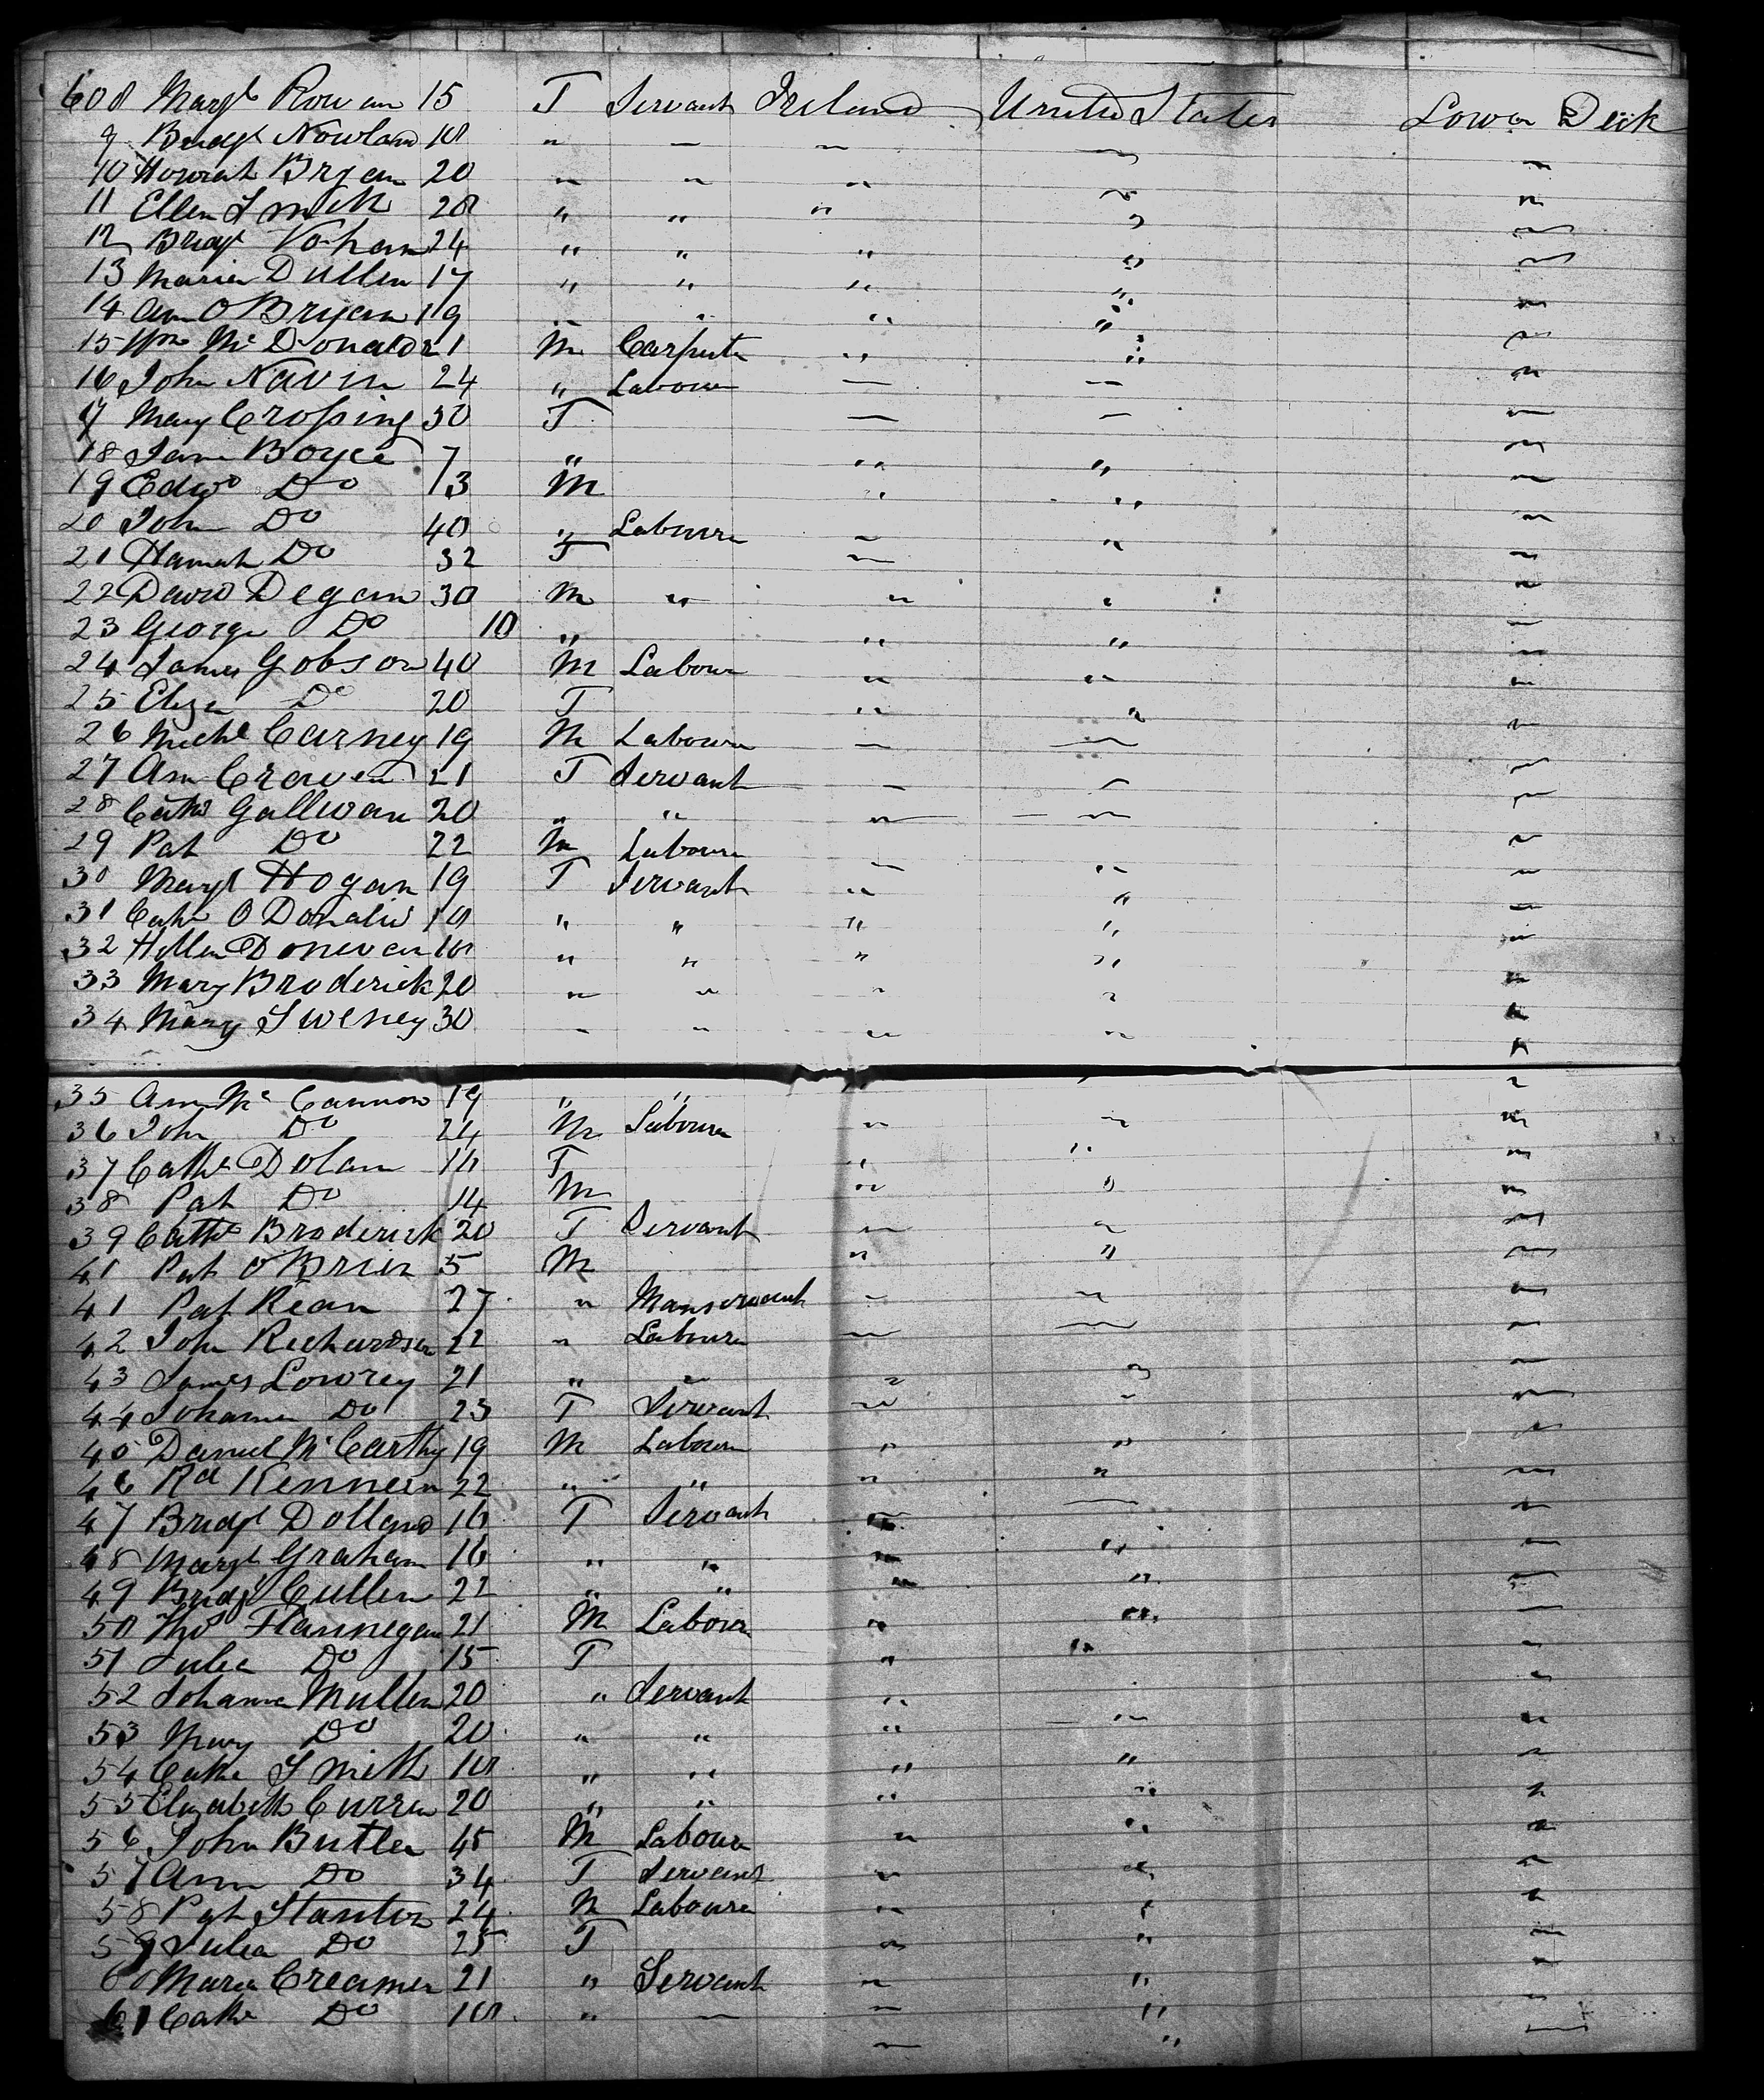 608 Margt Rowan 15 F Servant Ireland United States Lower Deck
9 Bridgt Nowland 18 " " " " "
10 Honorah Bryan 20 " " " " "
11 Ellen Smith 28 " " " " "
12 Bridgt 24 " " " " "
13 Maria Dullen 17 " " " " "
14 Ann O Bryan 19 " " " " "
15 Wm Mc Donald 21 M Carpenter " " "
16 John Navin 24 " Labourer " " "
17 Mary Crossing 30 F " " "
18 Jane Boyce 7 " " " "
19 Edwd Do 13 M " " "
20 John Do 40 " Labourer " " "
21 Hannah Do 32 F " " "
22 David Degan 30 M " " " "
23 George Do 10 " " " "
24 James Gobson 40 M Labour " " "
25 Eliza Do 20 F " " "
26 Michl Carney 19 M Labourer " " "
27 Ann Craven 21 F Servant " " "
28 Cathe Gallivan 20 " " " " "
29 Pat Do 22 M Labourer " " "
30 Margt Hogan 19 F Servant " " "
31 Cathe O Donald 18 " " " " "
32 Hellen Donevan 18 " " " " "
33 Mary Broderick 20 " " " " "
34 Mary Sweney 30 " " " " "
35 Ann Mc Cannon 19 " " " "
36 John Do 24 M Labourer " " "
37 Cathe Dolan 16 F " " "
38 Pat Do 14 M " " "
39 Cathe Broderick 20 F Servant " " "
41 Pat O Brien 5 M " " "
41 Pat Kean 27 " Manservant " " "
42 John Richardson 22 " Labourer " " "
43 James Lowrey 21 " " " " "
44 Johanna Do 23 F Servant " " "
45 Daniel Mc Carthy 19 M Labourer " " "
46 Rd Kenneen 22 " " " " "
47 Bridgt Dolland 16 F Servant " " "
48 Margt Graham 16 " " " " "
49 Bridgt Cullen 22 " " " " "
50 Thos Flannegan 21 M Labourer " " "
51 Julia Do 15 F " " "
52 Johanna Mullen 20 " Servant " "
53 Mary Do 20 " " " " "
54 Cathe Smith 18 " " " " "
55 Elizabeth Curren 20 " " " " "
56 John Butler 45 M Labourer " " "
57 Ann Do 34 F Servant " " "
58 Pat Stanton 24 M Labourer " " "
59 Julia Do 25 F " " "
60 Maria Creamer 21 " Servant " " "
61 Cathe Do 18 " " " " "